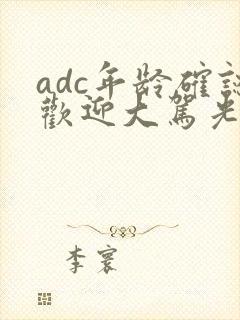 adc年龄確認
歡迎大駕光
李寰